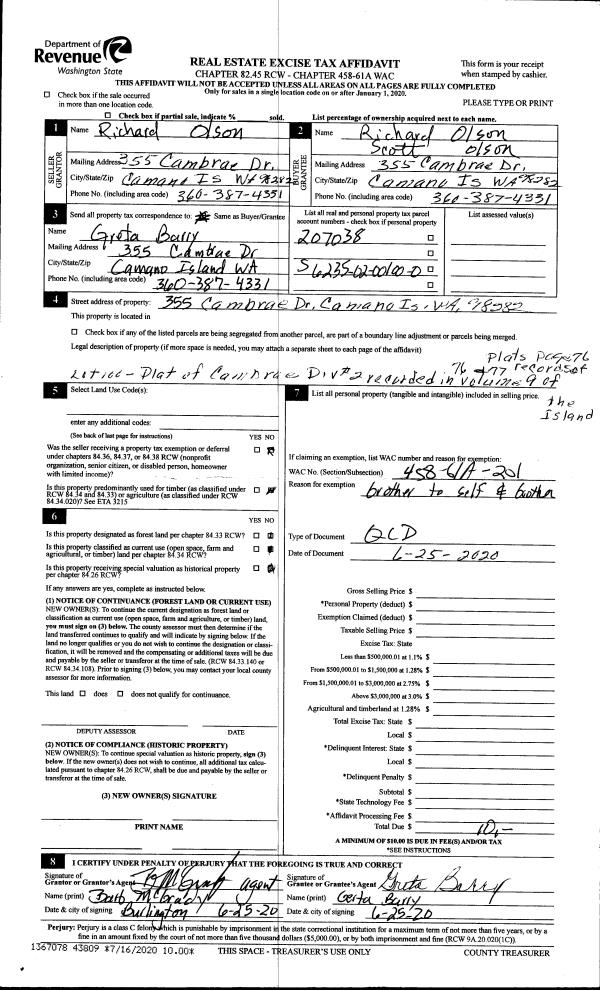 Department of
Revenue
Washington State
REAL ESTATE EXCISE TAX AFFIDAVIT
CHAPTER 82.45 RCW - CHAPTER 458-61A WAC
THIS AFFIDAVIT WILL NOT BE ACCEPTED UNLESS ALL AREAS ON ALL PAGES ARE FULLY COMPLETED
Only for sales in a single location code on or after January 1, 2020.
This form is your receipt
when stamped by cashier.
PLEASE TYPE OR PRINT
Check box if the sale occurred
in more than one location code.
Check box if partial sale, indicate % sold.
List percentage of ownership acquired next to each name.
1
SELLER
GRANTOR
Name Richard Olson
Mailing Address 355 Cambrae Dr.
City/State/Zip Camano Is WA 98282
Phone No. (including area code) 360-387-4331
2
BUYER
GRANTEE
Name Richard Olson
Scott Olson
Mailing Address 355 Cambrae Dr.
City/State/Zip Camano Is WA 98282
Phone No. (including area code) 360-387-4331
3
Send all property tax correspondence to: Same as Buyer/Grantee
Name Greta Barry
Mailing Address 355 Cambrae Dr
City/State/Zip Camano Island WA
Phone No. (including area code) 360-387-4331
List all real and personal property tax parcel
account numbers - check box if personal property
207038
S6235-02-00100-0
List assessed value(s)
4
Street address of property: 355 Cambrae Dr, Camano Is. WA, 98282
This property is located in
Check box if any of the listed parcels are being segregated from another parcel, are part of a boundary line adjustment or parcels being merged.
Legal description of property (if more space is needed, you may attach a separate sheet to each page of the affidavit)
Plat of Cambrae Div #2 recorded in volume 9 of
Plats page 76
76 & 77 records of
the
Island
5
Select Land Use Code(s):
enter any additional codes:
(See back of last page for instructions)
YES NO
Was the seller receiving a property tax exemption or deferral
under chapters 84.36, 84.37, or 84.38 RCW (nonprofit
organization, senior citizen, or disabled person, homeowner
with limited income)?
Is this property predominantly used for timber (as classified under
RCW 84.34 and 84.33) or agriculture (as classified under RCW
84.34.020)? See ETA 3215
6
YES NO
Is this property designated as forest land per chapter 84.33 RCW?
Is this property classified as current use (open space, farm and
agricultural, or timber) land per chapter 84.34 RCW?
Is this property receiving special valuation as historical property
per chapter 84.26 RCW?
If any answers are yes, complete as instructed below.
(1) NOTICE OF CONTINUANCE (FOREST LAND OR CURRENT USE)
NEW OWNER(S): To continue the current designation as forest land or
classification as current use (open space, farm and agriculture, or timber) land,
you must sign on (3) below. The county assessor must then determine if the
land transferred continues to qualify and will indicate by signing below. If the
land no longer qualifies or you do not wish to continue the designation or classi-
fication, it will be removed and the compensating or additional taxes will be due
and payable by the seller or transferor at the time of sale. (RCW 84.33.140 or
RCW 84.34.108). Prior to signing (3) below, you may contact your local county
assessor for more information.
This land does does not qualify for continuance.
DEPUTY ASSESSOR DATE
(2) NOTICE OF COMPLIANCE (HISTORIC PROPERTY)
NEW OWNER(S): To continue special valuation as historic property, sign (3)
below. If the new owner(s) does not wish to continue, all additional tax calcu-
lated pursuant to chapter 84.26 RCW, shall be due and payable by the seller or
transferor at the time of sale.
(3) NEW OWNER(S) SIGNATURE
PRINT NAME
7
List all personal property (tangible and intangible) included in selling price.
If claiming an exemption, list WAC number and reason for exemption:
WAC No. (Section/Subsection) 458-61A-201
Reason for exemption
brother to self & brother
Type of Document QCD
Date of Document 6-25-2020
Gross Selling Price $
*Personal Property (deduct) $
Exemption Claimed (deduct) $
Taxable Selling Price $
Excise Tax: State
Less than $500,000.01 at 1.1% $
From $500,000.01 to $1,500,000 at 1.28% $
From $1,500,000.01 to $3,000,000 at 2.75% $
Above $3,000,000 at 3.0% $
Agricultural and timberland at 1.28% $
Total Excise Tax: State $
Local $
*Delinquent Interest: State $
Local $
*Delinquent Penalty $
Subtotal $
*State Technology Fee $
*Affidavit Processing Fee $
Total Due $ 10,-
A MINIMUM OF $10.00 IS DUE IN FEE(S) AND/OR TAX
*SEE INSTRUCTIONS
8
I CERTIFY UNDER PENALTY OF PERJURY THAT THE FOREGOING IS TRUE AND CORRECT
Signature of
Grantor or Grantor's Agent B McGrady agent
Name (print) Barb McGrady
Date & city of signing Burlington 6-25-20
Signature of
Grantee or Grantee's Agent Greta Barry
Name (print) Greta Barry
Date & city of signing 6-25-20
Perjury: Perjury is a class C felony which is punishable by imprisonment in the state correctional institution for a maximum term of not more than five years, or by a
fine in an amount fixed by the court of not more than five thousand dollars ($5,000.00), or by both imprisonment and fine (RCW 9A.20.020(1C)).
1367078 43809 *7/16/2020 10.00*
THIS SPACE - TREASURER'S USE ONLY
COUNTY TREASURER